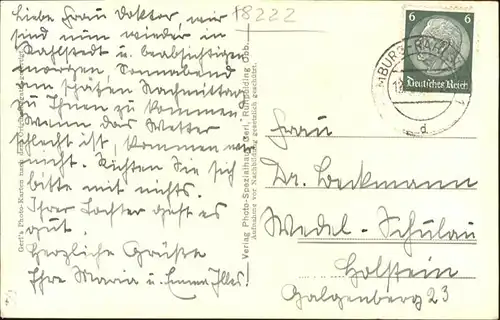 Liebe Frau Doktor, wir
sind nun wieder in
Rahlstedt u. beabsichtigen
morgen, Sonnabend
am späten Nachmittag
zu Ihnen zu kommen.
Wenn das Wetter
schlecht ist, kommen wir
nicht. Richten Sie sich
bitte mit nichts.
Ihrer Tochter geht es
gut.
Herzliche Grüße
Ihre Maria u.
18222
Gerl's Photo-Karten
Verlag Photo-Spezialhaus Gerl, Ruhpolding Obb.
Aufnahme vor Nachbildung gesetzlich geschützt.
6 6
Deutsches Reich
d
Frau
Dr. Beckmann
Wedel-Schulau
Holstein
Galgenberg 23